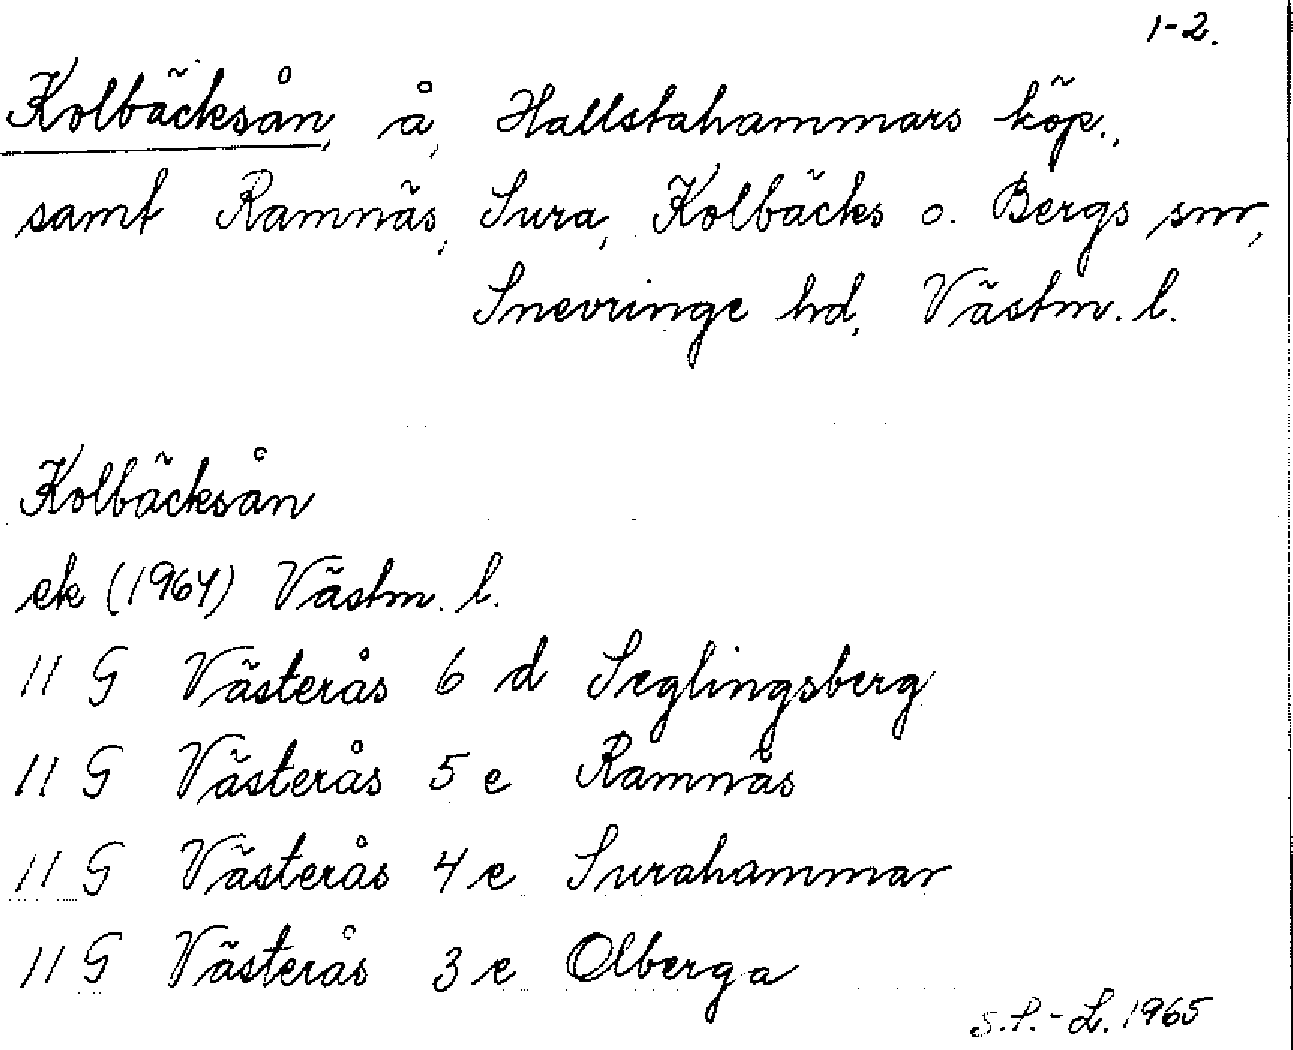 1-2.
Kolbäcksån, å, Hallstahammars köp.,
samt Ramnäs, Sura, Kolbäcks o. Bergs snr,
Snevringe hd, Västm. l.
Kolbäcksån
ek (1964) Västm. l.
11 G Västerås 6 d Seglingsberg
11 G Västerås 5 e Ramnäs
11 G Västerås 4 e Surahammar
11 G Västerås 3 e Olberga
S.S.-L. 1965